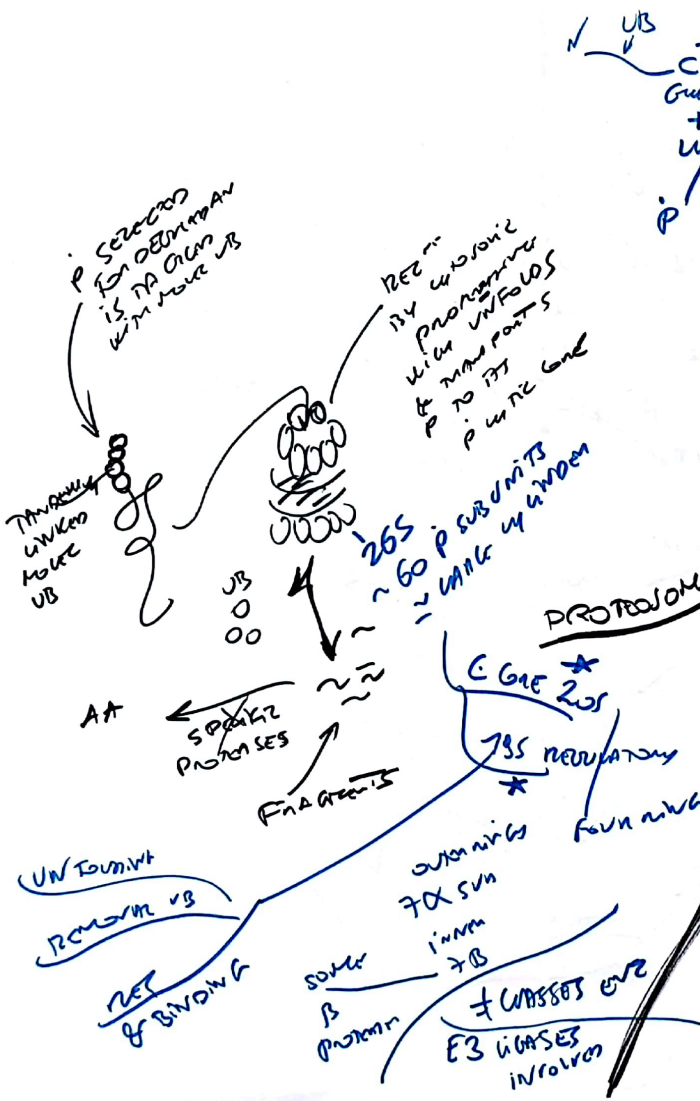 N UB
C
P
P SELECTED
FOR DEGRADAN
IS
WITH MOLEC UB
REC
BY CYTOSOLIC
WICH UNFOLDS
& TRANSPORTS
P TO ITS
CORE
TANDEMLY
LINKED
MOLEC
UB
UB
26S
~ 60 P SUBUNITS
~ LARGE CYLINDER
PROTEOSOM
C CORE 20S
19S REGULATORY
FOUR RING
AA
SPECIFIC
PROTEASES
FRAGMENTS
UNFOLDING
REMOVAL UB
REC
& BINDING
OUTER RINGS
7α SUB
INNER
7B
SOME
B
PROTEIN
≠ CLASSES ENZ
E3 LIGASES
INVOLVED